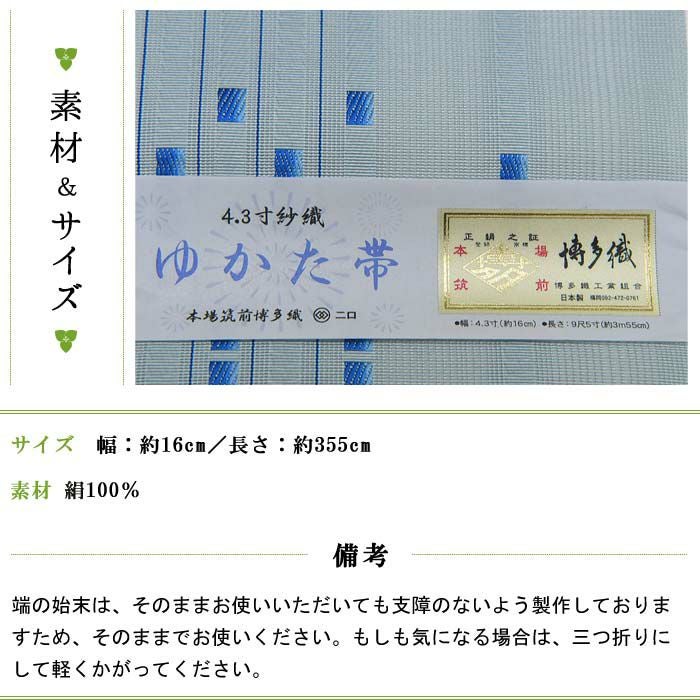 素材&サイズ
4.3寸紗織
ゆかた帯
本場筑前博多織 二口
正絹之証
登録 商標
本場
筑前
博多織
博多織工業組合
日本製 福岡092-472-0761
●幅：4.3寸(約16cm) ●長さ：9尺5寸(約3m55cm)
サイズ 幅：約16cm／長さ：約355cm
素材 絹100%
備考
端の始末は、そのままお使いいただいても支障のないよう製作しておりま
すため、そのままでお使いください。もしも気になる場合は、三つ折りに
して軽くかがってください。